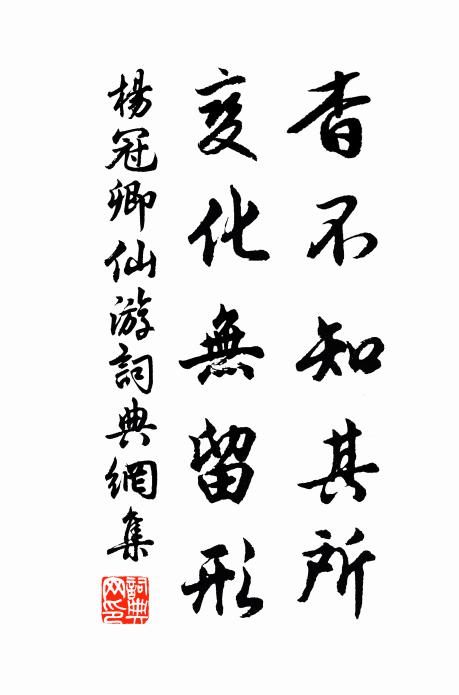 杳不知其所
變化無留形
楊冠卿仙游詞典網集
詞典网印